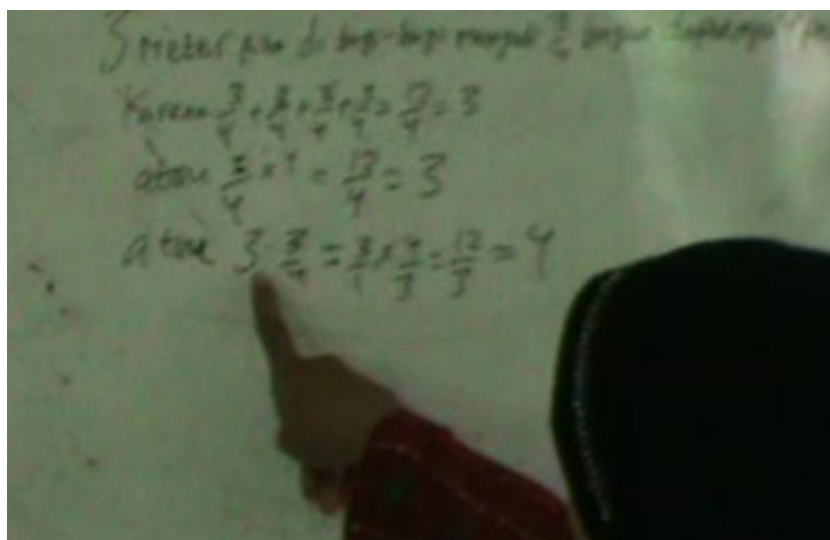 3 meter pita di bagi-bagi menjadi 3/4 bagian
Karena 3/4 + 3/4 + 3/4 + 3/4 = 12/4 = 3
atau 3/4 × 4 = 12/4 = 3
atau 3 : 3/4 = 3/1 × 4/3 = 12/3 = 4